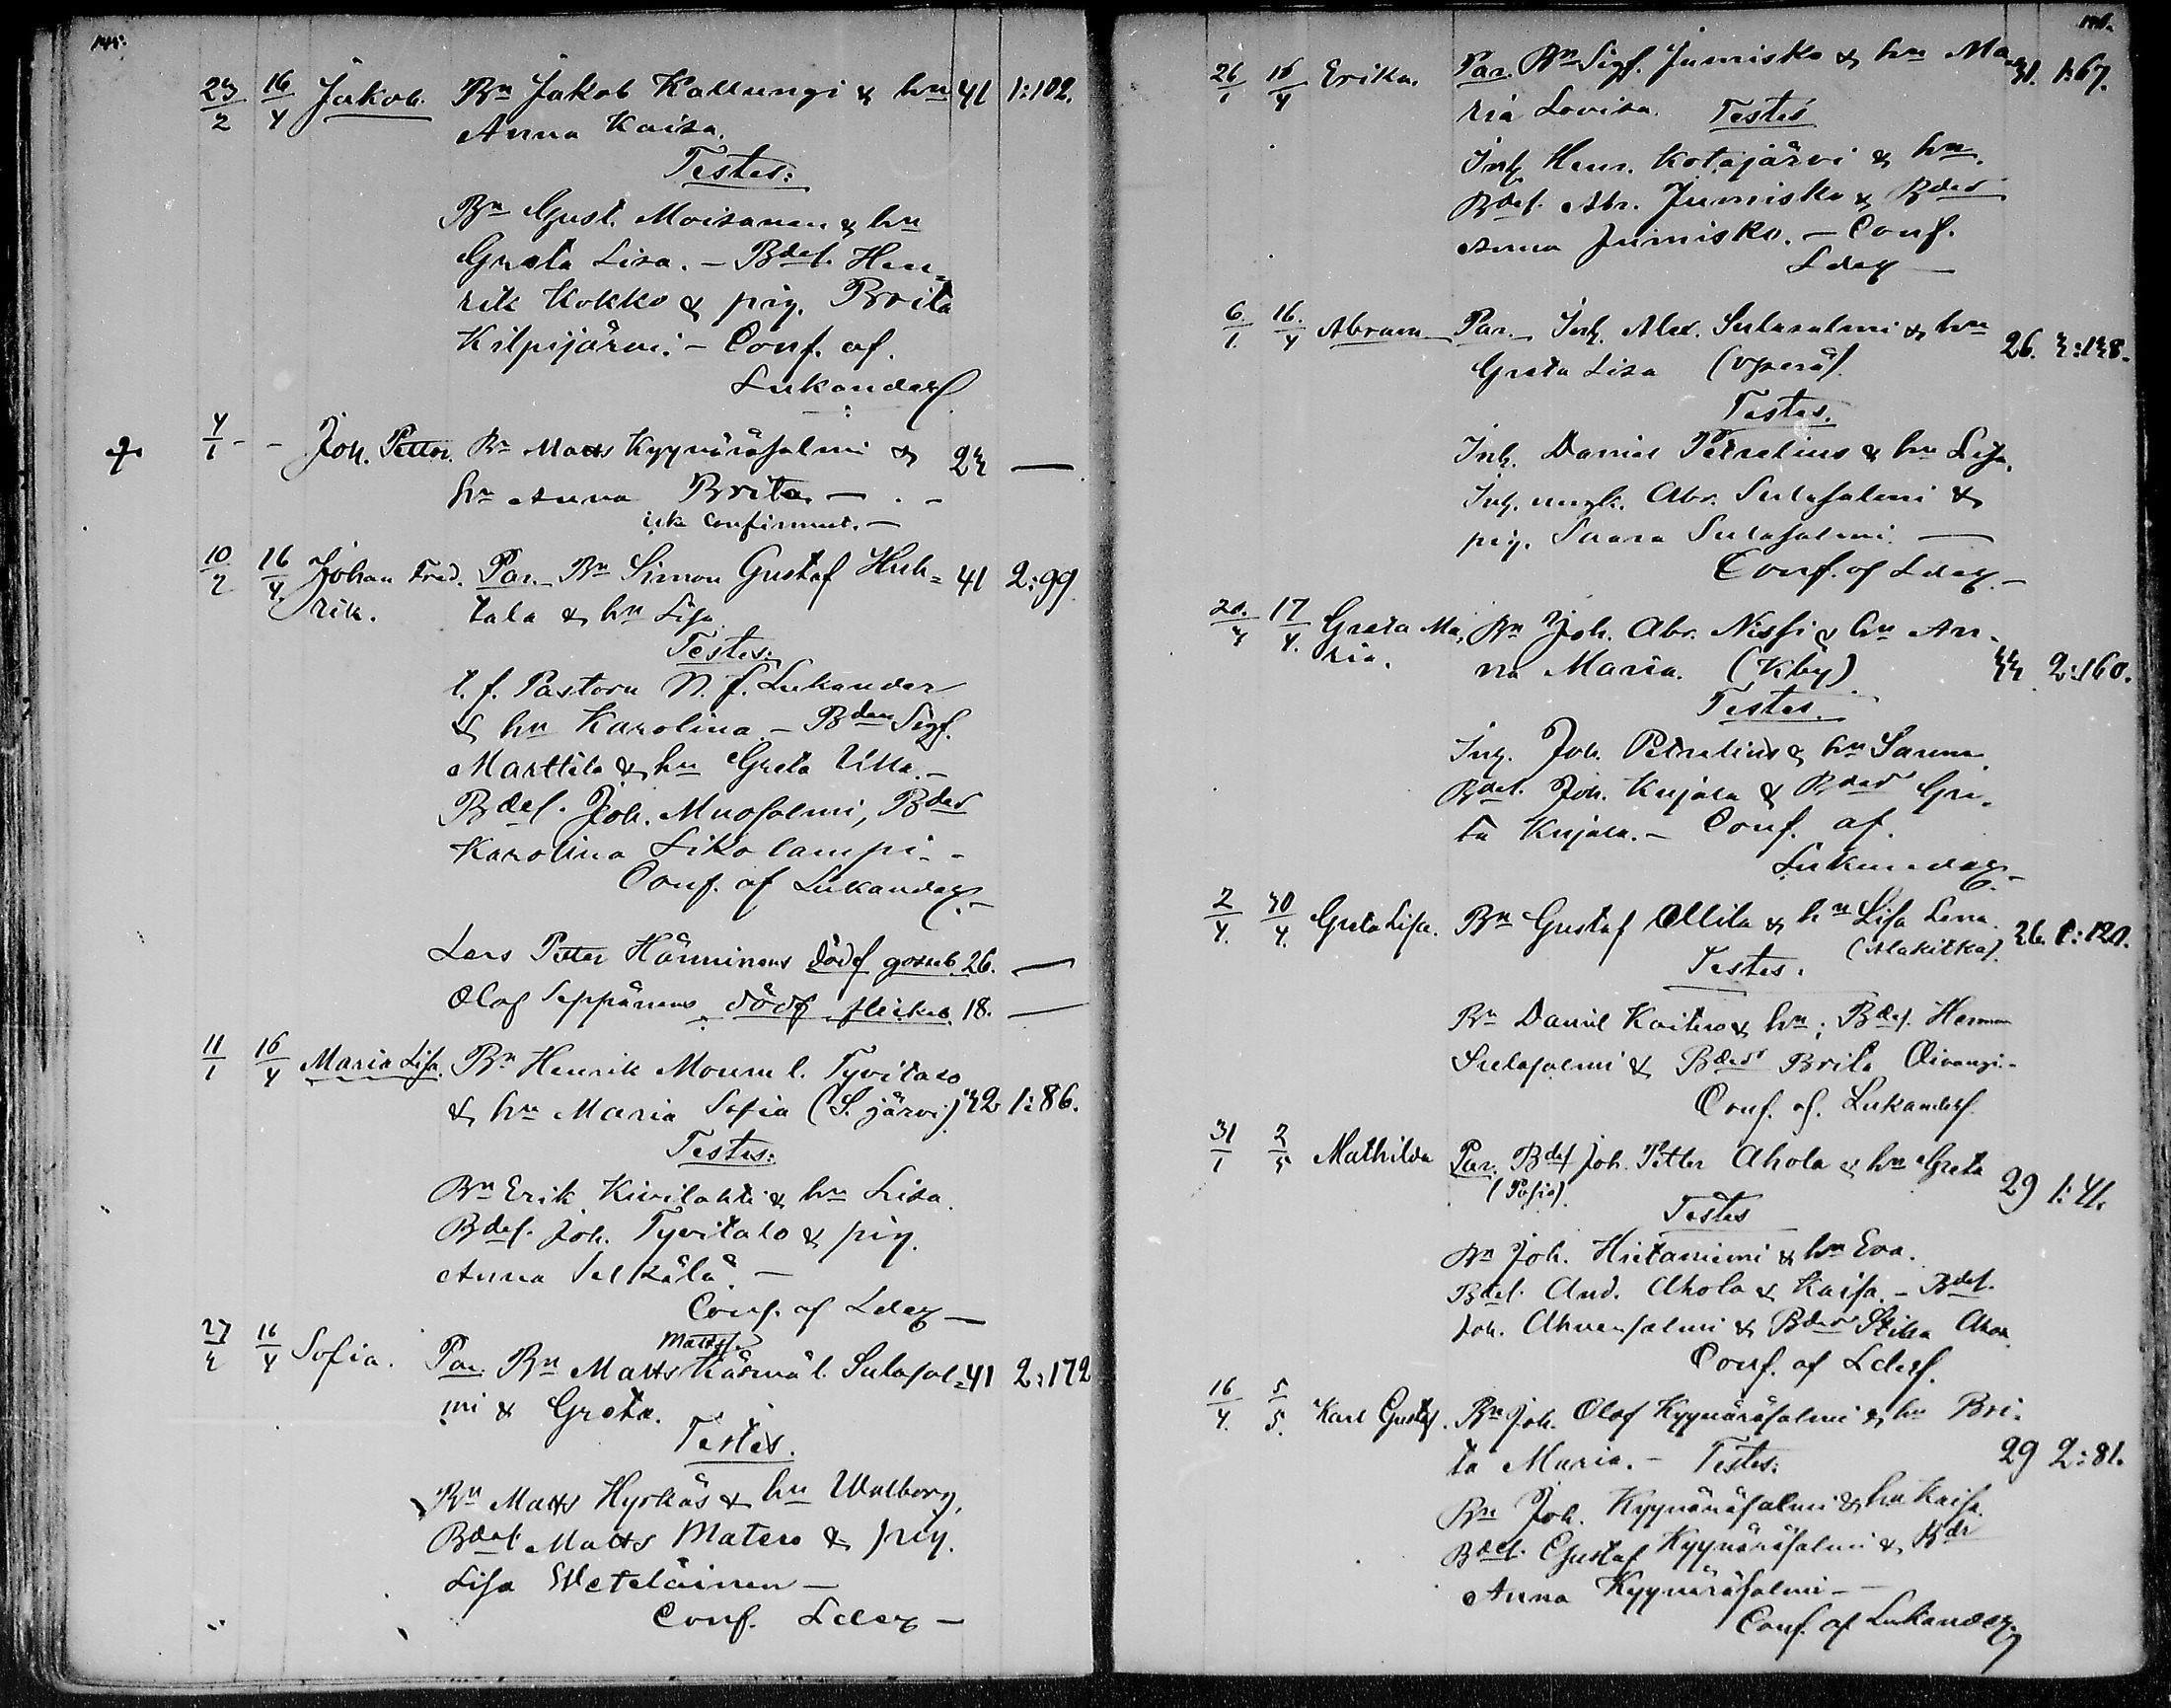 23/2 16/4 Jakob. Bn Jakob Kallungi & hu 41 1:102.
Anna Kaisa.
Testes:
Bn Gust. Moisanen & hu
Greta Lisa. – Bdes. Hen=
rik Kokko & pig. Brita
Kilpijärvi. – Conf. af.
Lukander
4/1 - - Joh. Petter. Bn Matts Kyynäräsalmi & 23 —
hu Anna Brita. —
icke confirmert. —
10/2 16/4 Johan Fred. Par. Bn Simon Gustaf Huh= 41 2:99
rik. tala & hu Lisa
Testes:
t. f. Pastorn N. J. Lukander
& hu Karolina. – Bden Sigf.
Marttila & hu Greta Ulla. –
Bdes. Joh. Muosalmi, Bdes
Karolina Siikolampi. -
Conf. af Lukander –
Lars Petter Hänninens dödf. gosseb. 26. —
Olof Seppänens dödf. flickeb. 18. —
11/1 16/4 Maria Lisa. Bn Henrik Mourul. Tyvitalo
& hu Maria Sofia (S. järvi) 32 1:86.
Testes:
Bn Erik Kivilahti & hu Lisa
Bdes. Joh. Tyvitalo & pig.
Anna Selkälä. —
Conf. af Lder —
27/2 16/4 Sofia. Par. Bn Matts Kärmä l. Sulasal= 41 2:172
mi & Greta.
Testes.
Bn Matts Hyrkäs & hu Walborg,
Bdes. Matts Matero & pig.
Lisa Weteläinen —
Conf. Lder —
26/1 16/4 Erika. Par. Bn Sigf. Jumisko & hu Ma= 31. 1:67.
ria Lovisa. Testes
Inh. Henr. Kotajärvi & hu.
Bdes. Abr. Jumisko & Bdes
Anna Jumisko. – Conf.
Lder —
6/1. 16/4 Abram Par. Inh. Alex. Sulasalmi & hu 26. 3:138.
Greta Lisa
Testes.
Inh. Daniel Petrelius & hu Lisa.
Inh. ungk. Abr. Sulasalmi &
pig. Saara Sulasalmi. —
Conf. af Lder –
20/3 17/4. Greta Ma= Bn Joh. Abr. Nissi & hu An=
ria. na Maria. (Kby) 33 2:160.
Testes.
Inh. Joh. Petrelius & hu Sanna.
Bdes. Joh. Kujala & Bdes Gre=
ta Kujala. – Conf. af.
Lukander –
2/4. 30/4. Greta Lisa. Bn Gustaf Ollila & hu Lisa Lena. 36. 1:120.
(Alakitka)
Testes.
Bn Daniel Kaitero & hu; Bdes. Herman
Sulasalmi & Bdes Brita Oivangi. –
Conf. af. Lukander.
31/1 2/5 Mathilda Par. Bdes Joh. Petter Ahola & hu Greta 29 1:41.
(Posio)
Testes
Bn Joh. Hietaniemi & hu Eva.
Bdes. And. Ahola & Kaisa. – Bdes.
Joh. Ahvensalmi & Bdes Stina Ahola
Conf. af Lder.
16/4. 5/5. Karl Gustaf. Bn Joh. Olof Kyynäräsalmi & hu Bri=
ta Maria. – Testes: 29 2:81.
Bn Joh. Kyynäräsalmi & hu Kaisa.
Bdes. Gustaf Kyynäräsalmi & Bdr
Anna Kyynäräsalmi –
Conf. af Lukander